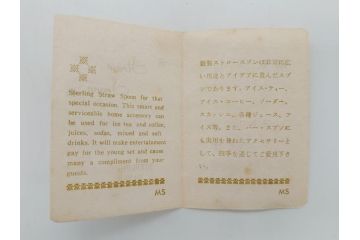 Sterling Straw Spoon for that
special occasion. This smart and
serviceable home accessory can
be used for ice tea and coffee,
juices, sodas, mixed and soft
drinks. It will make entertainment
gay for the young set and cause
many a compliment from your
guests.
MS
銀製ストロースプンは非常に広
い用途とアイデアに富んだスプ
ンであります。アイス・ティー、
アイス・コーヒー、ソーダー、
スカッシュ、各種ジュース、ア
イス等、また、バー・スプンに
も実用を兼ねたアクセサリーと
して、四季を通じてご愛用下さ
い。
MS